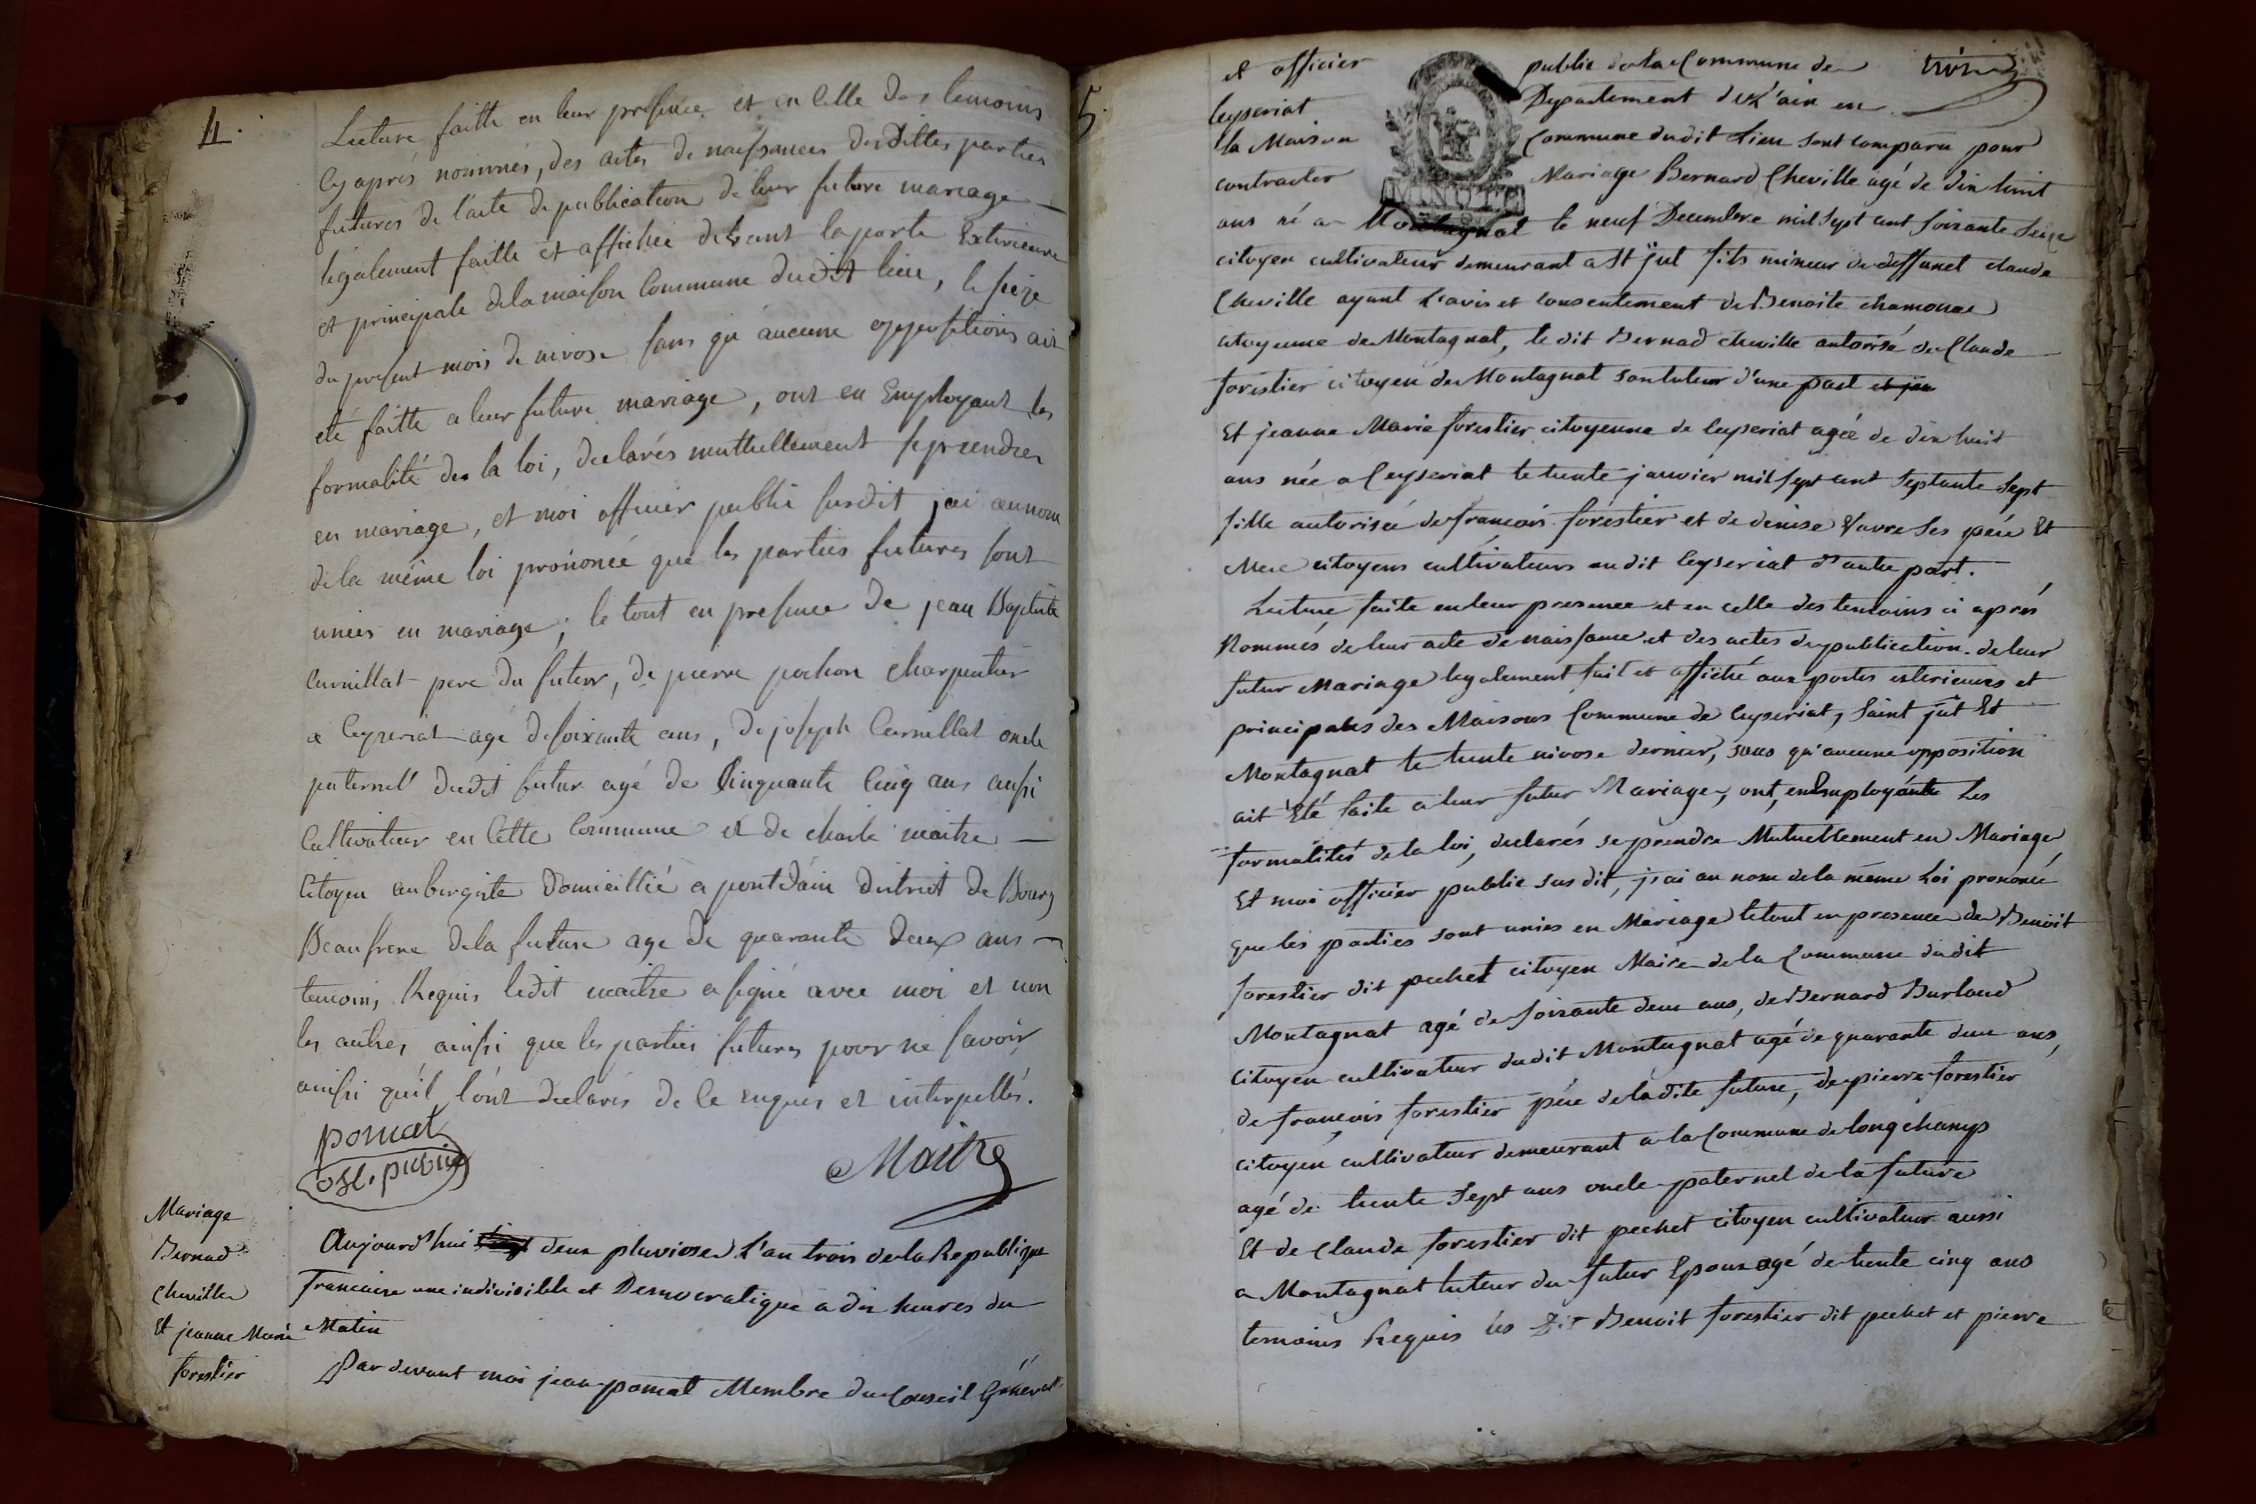 4.
Lecture faitte en leur presence et en celle des temoins
Cy après nommés, des actes de naissances desdittes parties
futures de l'acte de publication de leur future mariage
légalement faitte et affichée devant la porte Exterieure
et principale de la maison Commune dudit lieu, le seize
du present mois de nivose sans qu'aucune oppositions ait
été faitte a leur future mariage, ont en Employant les
formalité de la loi, declarés mutuellement se prendre
en mariage, et moi officier public susdit jai au nom
de la même loi prononcé que les parties futures sont
unies en mariage; le tout en presence de jean Baptiste
Curnillat pere du futur, de pierre pochon charpentier
a Ceyzeriat agé de soixante ans, de joseph Curnillat oncle
paternel dudit futur agé de Cinquante Cinq ans aussi
Cultivateur en Cette Commune et de charle maitre
Citoyen aubergiste domicillié a pontdain district de Bourg
Beaufrere de la future age de quarante deux ans
temoins, Requis ledit maitre a signé avec moi et non
les autres ainssi que les parties futures pour ne savoir
ainssi qu'il l'ont declarés de ce enquis et interpellés.
pomat
off. public
Maitre
Mariage
Bernad
cheville
Et jeanne Marie
forestier
Aujourd'hui deux pluviose L'an trois de la Republique
francaise une indivisible et Democratique a dix heures du
Matin
Par devant moi jean pomat Membre du Conseil Géneral
5.
et officier public de la Commune de
Ceyseriat Departement de L'ain en
la Maison Commune dudit Lieu sont comparu pour
contracter Mariage Bernard Cheville agé de dix huit
MINUTE
ans né a Montagnat le neuf Decembre mil sept cent soixante seize
citoyen cultivateur demeurant a St jul fils mineur de deffunct claude
Cheville ayant L'avis et consentement de Benoite chamonae
citoyenne de Montagnat, le dit Bernad cheville autorisé de Claude
forestier citoyen de Montagnat son tuteur d'une part
Et jeanne Marie forestier citoyenne de Ceyseriat agée de dix huit
ans née a Ceyseriat le trente janvier mil sept cent septante sept
fille autorisée de francois forestier et de denise Vavre ses pére Et
Mere citoyens cultivateurs audit Ceyseriat d'autre part.
Lecture faite en leur presence et en celle des temoins ci aprés
Nommés de leur acte de naissance et des actes de publication de leur
futur Mariage legalement fait et affiché aux portes exterieures et
principales des Maisons Commune de Ceyseriat, Saint jut Et
Montagnat le trente nivose dernier, sans qu'aucune opposition
ait Eté faite a leur futur Mariage, ont, en Employante Les
formalités de la loi, declarés se prendre Mutuellement en Mariage
Et moi officier public sus dit, j'ai au nom de la même Loi prononcé
que les parties sont unies en Mariage le tout en presence de Benoit
forestier dit pechet citoyen Maire de la Commune du dit
Montagnat agé de soixante deux ans, de Bernard Burtaud
citoyen cultivateur dudit Montagnat agé de quarante deux ans,
de françois forestier pére de la dite future, de pierre forestier
citoyen cultivateur demeurant a la Commune de longchamp
agé de trente sept ans oncle paternel de la future
Et de Claude forestier dit pechet citoyen cultivateur aussi
a Montagnat tuteur du futur Epoux agé de trente cinq ans
temoins Requis les dit Benoit forestier dit pechet et pierre